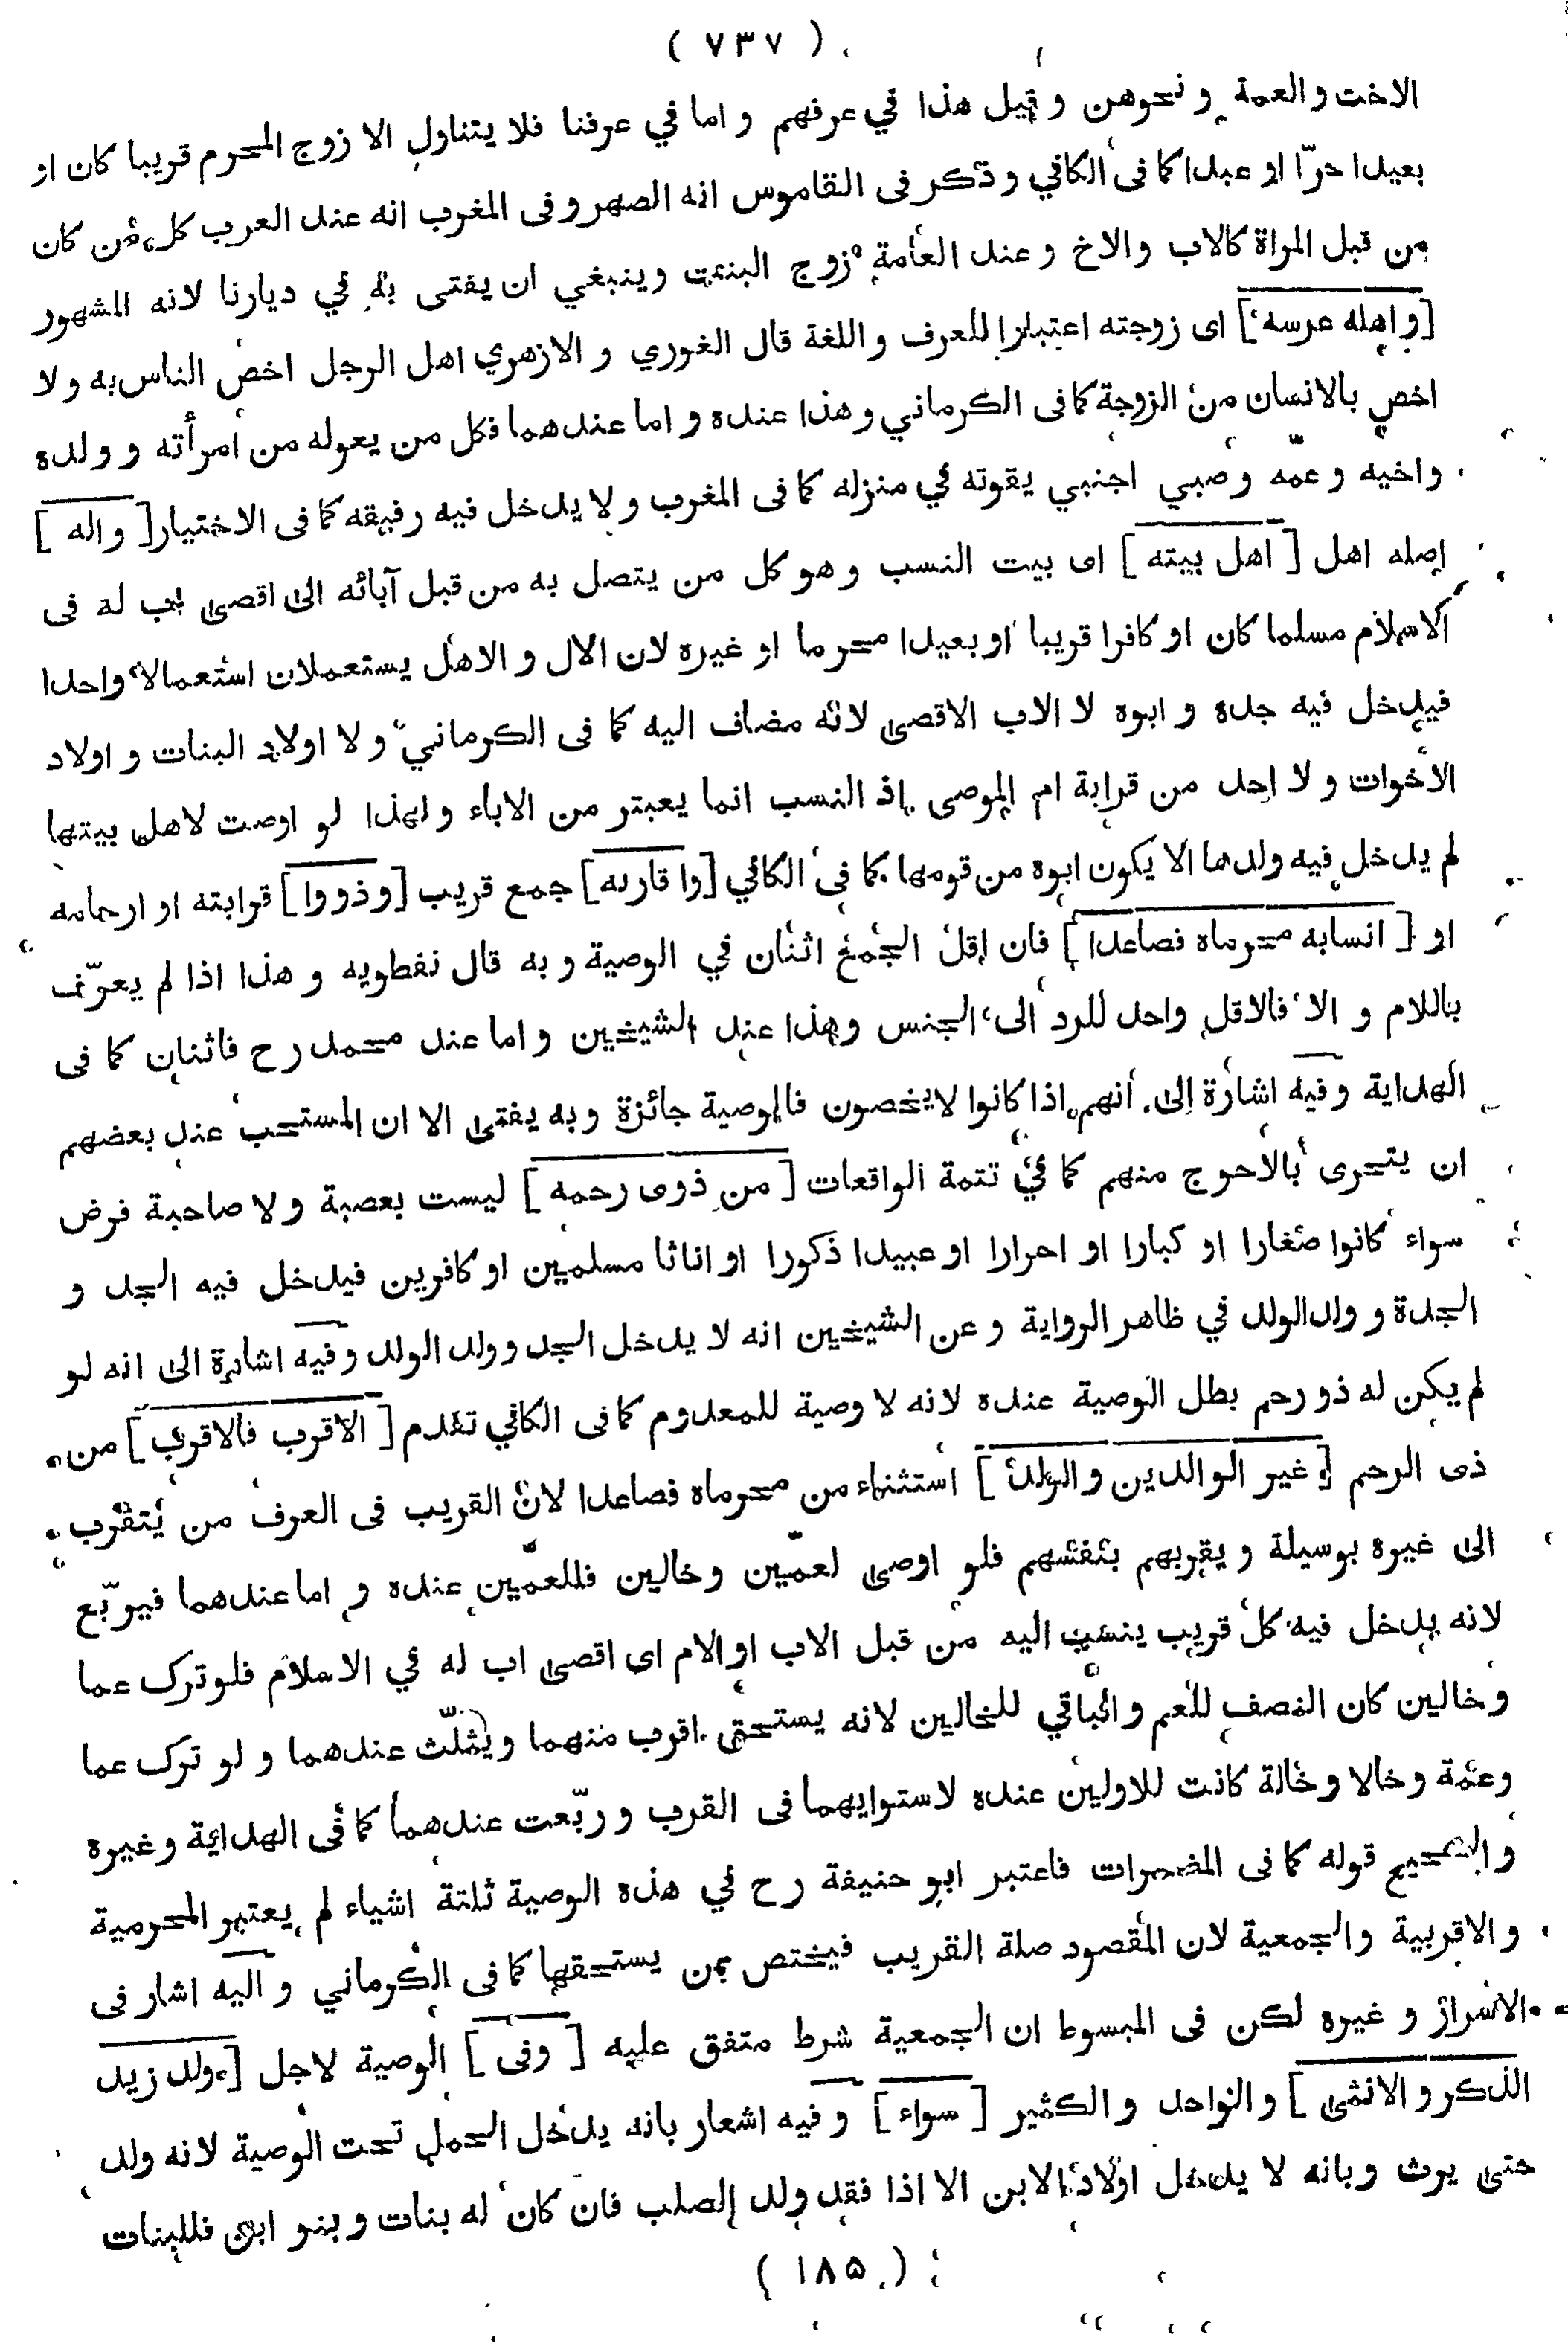 ( ٧٣٧ )
الاخت والعمة ونحوهن وقيل هذا في عرفهم واما في عرفنا فلا يتناول الا زوج المحرم قريبا كان او
بعيدا حرّا او عبدا كما فى الكافي وذكر فى القاموس انه الصهر وفى المغرب انه عند العرب كل من كان
من قبل المراة كالاب والاخ وعند العامة زوج البنت وينبغي ان يفتى به في ديارنا لانه المشهور
[واهله عرسه] اى زوجته اعتبارا للعرف واللغة قال الغوري والازهري اهل الرجل اخص الناس به ولا
اخص بالانسان من الزوجة كما فى الكرماني وهذا عنده واما عندهما فكل من يعوله من امرأته وولده
واخيه وعمّه وصبي اجنبي يقوته في منزله كما فى المغرب ولا يدخل فيه رفيقه كما فى الاختيار [واله]
اصله اهل [اهل بيته] اى بيت النسب وهو كل من يتصل به من قبل آبائه الى اقصى اب له فى
الاسلام مسلما كان او كافرا قريبا او بعيدا محرما او غيره لان الال والاهل يستعملان استعمالا واحدا
فيدخل فيه جده وابوه لا الاب الاقصى لانه مضاف اليه كما فى الكرماني ولا اولاد البنات واولاد
الاخوات ولا احد من قرابة ام الموصى اذ النسب انما يعبتر من الاباء ولهذا لو اوصت لاهل بيتها
لم يدخل فيه ولدها الا يكون ابوه من قومها كما فى الكافي [واقاربه] جمع قريب [وذووا] قرابته او ارحامه
او [انسابه محرماه فصاعدا] فان اقل الجمع اثنان في الوصية وبه قال نفطويه وهذا اذا لم يعرّف
باللام والا فالاقل واحد للرد الى الجنس وهذا عند الشيخين واما عند محمد رح فاثنان كما فى
الهداية وفيه اشارة الى انهم اذا كانوا لا يخصون فالوصية جائزة وبه يفتى الا ان المستحب عند بعضهم
ان يتحرى بالاحوج منهم كما في تتمة الواقعات [من ذوى رحمه] ليست بعصبة ولا صاحبة فرض
سواء كانوا صغارا او كبارا او احرارا او عبيدا ذكورا او اناثا مسلمين او كافرين فيدخل فيه الجد و
الجدة وولد الولد في ظاهر الرواية وعن الشيخين انه لا يدخل الجد وولد الولد وفيه اشارة الى انه لو
لم يكن له ذو رحم بطل الوصية عنده لانه لا وصية للمعدوم كما فى الكافي تقدم [الاقرب فالاقرب] من
ذى الرحم [غير الوالدين والولد] استثناء من محرماه فصاعدا لان القريب فى العرف من يتقرب
الى غيره بوسيلة ويقربهم بنفسهم فلو اوصى لعمّين وخالين فللعمّين عنده واما عندهما فيربّع
لانه يدخل فيه كل قريب ينسب اليه من قبل الاب او الام اى اقصى اب له في الاسلام فلو ترك عما
وخالين كان النصف للعم والباقي للخالين لانه يستحق اقرب منهما ويثلّث عندهما ولو ترك عما
وعمّة وخالا وخالة كانت للاولين عنده لاستوايهما فى القرب وربّعت عندهما كما فى الهداية وغيره
والصحيح قوله كما فى المضمرات فاعتبر ابو حنيفة رح في هذه الوصية ثلثة اشياء لم يعتبر المحرمية
والاقربية والجمعية لان المقصود صلة القريب فيختص بمن يستحقها كما فى الكرماني واليه اشار فى
الاسرار وغيره لكن فى المبسوط ان الجمعية شرط متفق عليه [وفى] الوصية لاجل [ولد زيد
الذكر والانثى] والواحد والكثير [سواء] وفيه اشعار بانه يدخل الحمل تحت الوصية لانه ولد
حتى يرث وبانه لا يدخل اولاد الابن الا اذا فقد ولد الصلب فان كان له بنات وبنو ابن فللبنات
( ١٨٥ )